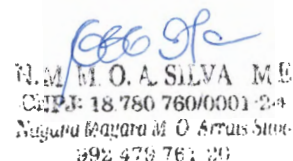 N. M M. O. A. SILVA M E
CNPJ: 18.780 760/0001-24
Nayana Mayara M. O. Arrais Silva
992 479 761 20